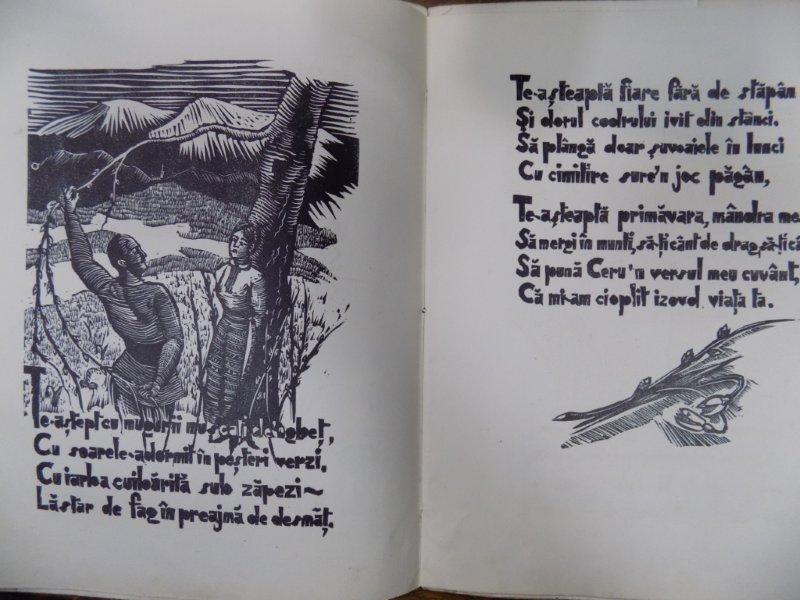 Te-aștept cu mugurii mușcați de-ngheț,
Cu soarele-adormit în peșteri verzi,
Cu iarba cuibărită sub zăpezi~
Lăstar de fag în preajmă de desmăț.
Te-așteaptă fiare fără de stăpân
Și dorul codrului ivit din stânci.
Să plângă doar șuvoaiele în lunci
Cu cimitire sure'n joc păgân,
Te-așteaptă primăvara, mândra mea
Să mergi în munți, să-ți cânt de drag, să-ți
Să pună Ceru'n versul meu cuvânt,
Că mi-am cioplit izvod viața ta.